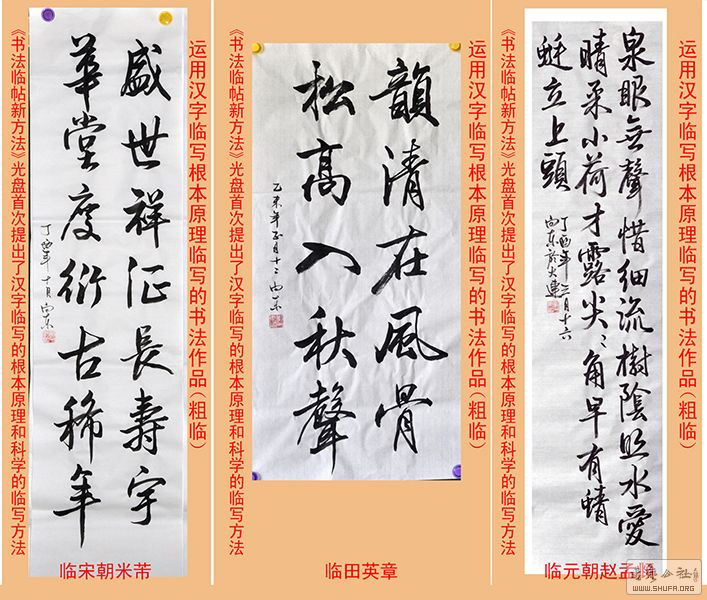 运用汉字临写根本原理临写的书法作品(粗临)
盛世祥征長壽宇
華堂慶衍古稀年
丁酉年十月向东
《书法临帖新方法》光盘首次提出了汉字临写的根本原理和科学的临写方法
临宋朝米芾
运用汉字临写根本原理临写的书法作品(粗临)
韻清在風骨
松高入秋聲
乙未年正月十二向东
《书法临帖新方法》光盘首次提出了汉字临写的根本原理和科学的临写方法
临田英章
运用汉字临写根本原理临写的书法作品(粗临)
泉眼無聲惜细流樹陰照水愛
晴柔小荷才露尖々角早有蜻
蜓立上頭
丁酉年三月十六
向东於大連
《书法临帖新方法》光盘首次提出了汉字临写的根本原理和科学的临写方法
临元朝赵孟頫
WWW.SHUFA.ORG